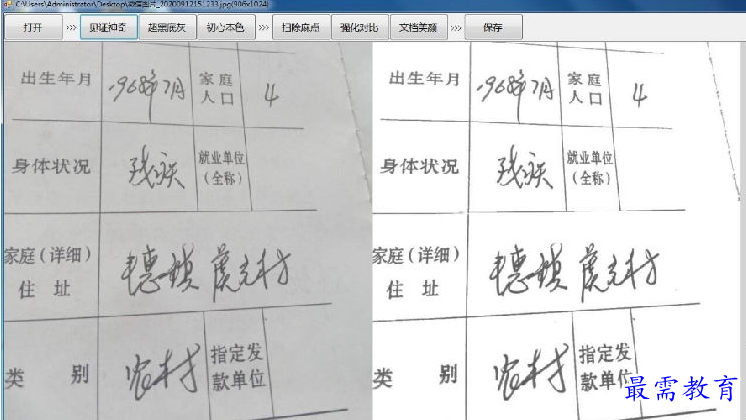 C:\Users\Administrator\Desktop\微信图片_20200912151233.jpg(906x1024)
打开 >>> 见证神奇 超黑底灰 初心本色 >>> 扫除麻点 强化对比 文档美颜 >>> 保存
出生年月 1968年7月 家庭人口 4
身体状况 残疾 就业单位(全称)
家庭(详细)住址
类别 农村 指定发款单位
出生年月 1968年7月 家庭人口 4
身体状况 残疾 就业单位(全称)
家庭(详细)住址
类别 农村 指定发款单位
最需教育